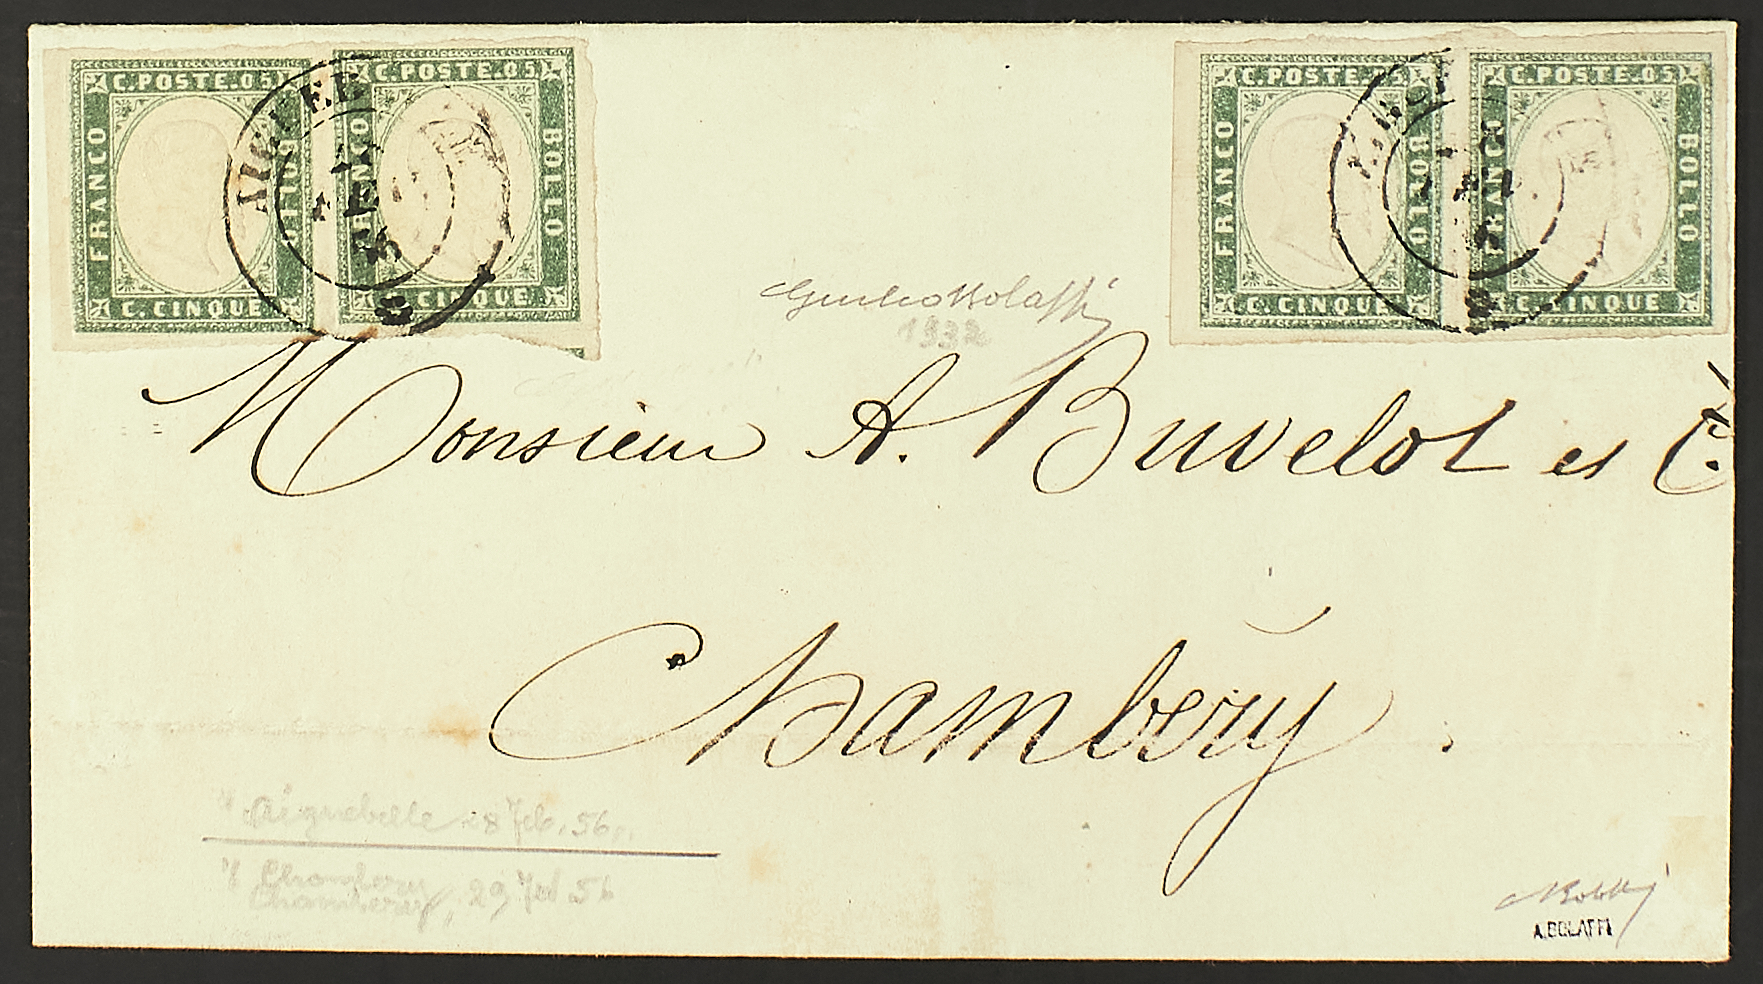 C.POSTE.05 C.POSTE.05 C.POSTE.05 C.POSTE.05
FRANCO BOLLO FRANCO BOLLO FRANCO BOLLO FRANCO BOLLO
C.CINQUE C.CINQUE C.CINQUE C.CINQUE
AIGUEB
Giulio Bolaffi
1932
Monsieur A. Buvelot et C.
Chambéry.
Aiguebelle 28 Feb. 56
Chambery
Chambery, 29 Feb 56
A.BOLAFFI